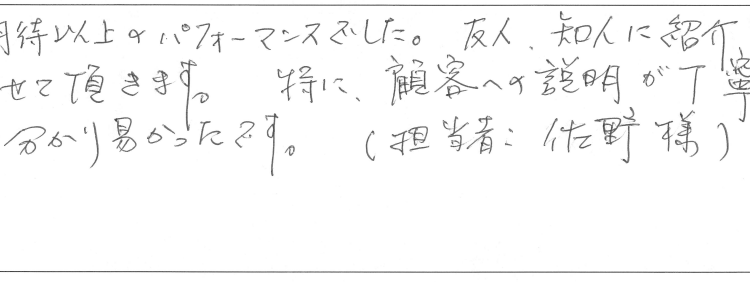 期待以上のパフォーマンスでした。 友人、知人に紹介
せて頂きます。 特に、顧客への説明が丁寧
分かり易かったです。 (担当者: 佐野様)